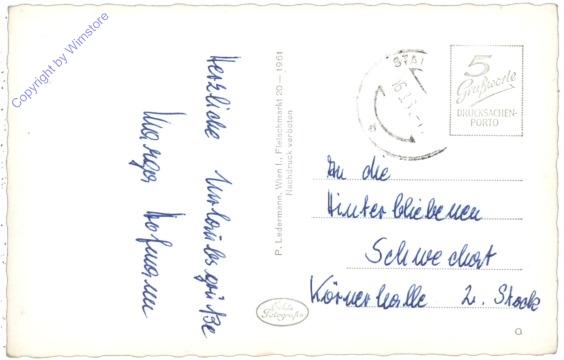 Copyright by Wimstore
Herzliche Urlaubsgrüße
Marga Hofmann
P. Ledermann, Wien I., Fleischmarkt 20 – 1961
Nachdruck verboten
Echte
Fotografie
5
Grußworte
DRUCKSACHEN-
PORTO
An die
Hinterbliebenen
Schwechat
Körnerhalle 2. Stock